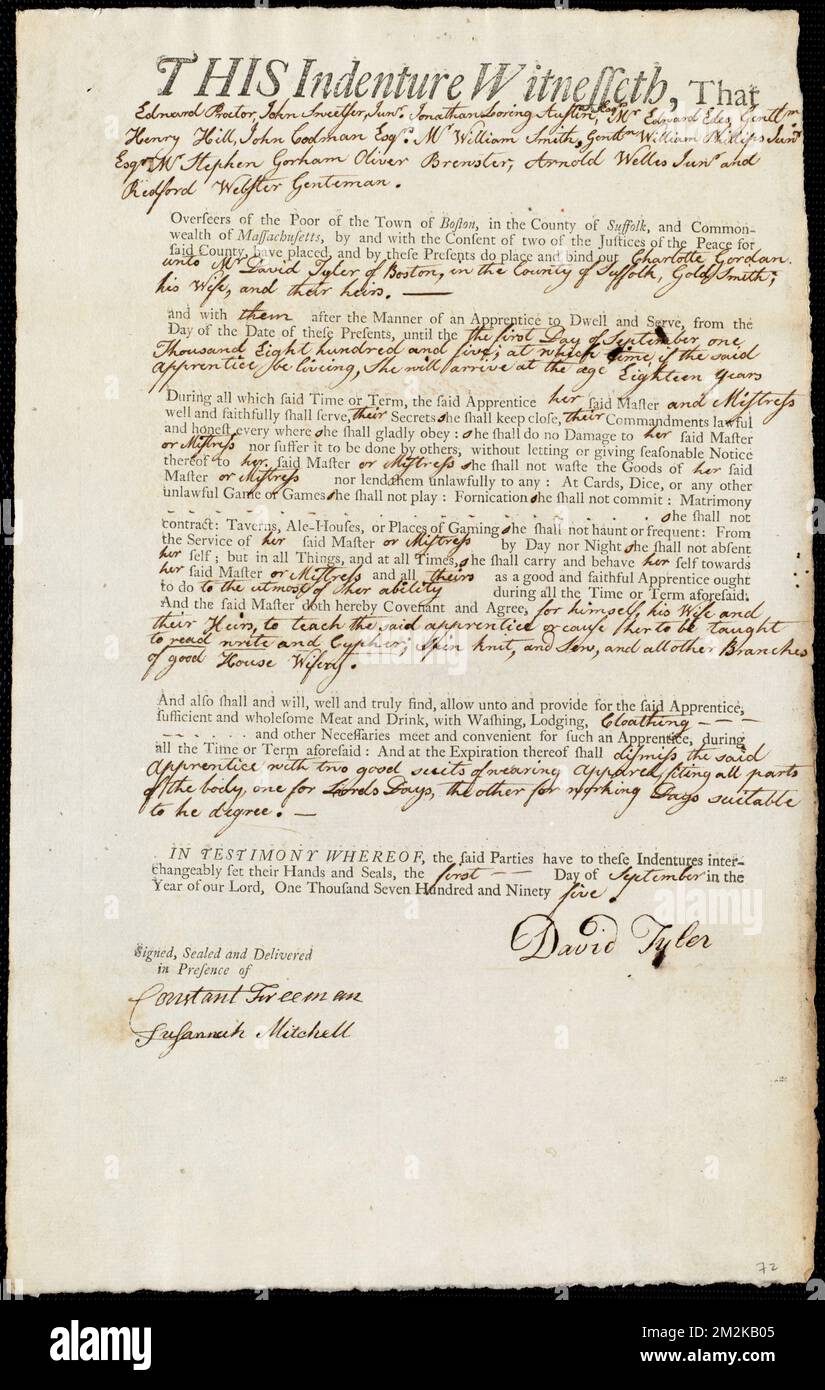 THIS Indenture Witnesseth, That
Edward Proctor, John Sweetser, Junr. Jonathan Loring Austin, Esqrs Mr Edward Edes, Gentlm
Henry Hill, John Codman Esqrs. Mr William Smith, Gentlm William Phillips Junr
Esqr Mr Stephen Gorham Oliver Brewster, Arnold Welles Junr and
Redford Webster Genteman.
Overſeers of the Poor of the Town of Boſton, in the County of Suffolk, and Common-
wealth of Maſſachuſetts, by and with the Conſent of two of the Juſtices of the Peace for
ſaid County, have placed, and by theſe Preſents do place and bind out Charlotte Gordan
unto Mr David Tyler of Boston, in the County of Suffolk, Gold Smith;
his Wife, and their heirs. —
and with them after the Manner of an Apprentice to Dwell and Serve, from the
Day of the Date of theſe Preſents, until the first Day of September one
Thousand Eight hundred and five; at which time, if the said
apprentice be liveing, She will arrive at the age Eighteen years
During all which ſaid Time or Term, the ſaid Apprentice her ſaid Maſter and Miſtreſs
well and faithfully ſhall ſerve, their Secrets she ſhall keep cloſe, their Commandments lawful
and honeſt every where she ſhall gladly obey : she ſhall do no Damage to her ſaid Maſter
or Miſtreſs nor ſuffer it to be done by others, without letting or giving ſeaſonable Notice
thereof to her ſaid Maſter or Miſtreſs she ſhall not waſte the Goods of her ſaid
Maſter or Miſtreſs nor lend them unlawfully to any : At Cards, Dice, or any other
unlawful Game or Games she ſhall not play : Fornication she ſhall not commit : Matrimony
- - - - - - - - - - - - she ſhall not
contract: Taverns, Ale-Houſes, or Places of Gaming she ſhall not haunt or frequent: From
the Service of her ſaid Maſter or Miſtreſs by Day nor Night she ſhall not abſent
her ſelf; but in all Things, and at all Times, she ſhall carry and behave her ſelf towards
her ſaid Maſter or Miſtreſs and all theirs as a good and faithful Apprentice ought
to do to the utmost of her ability during all the Time or Term aforeſaid.
And the ſaid Maſter doth hereby Covenant and Agree, for himself, his Wife and
their Heirs, to teach the said apprentice or cause her to be taught
to read write and Cypher; Spin knit, and Sew, and all other Branches
of good House Wifery.
And alſo ſhall and will, well and truly find, allow unto and provide for the ſaid Apprentice,
ſufficient and wholeſome Meat and Drink, with Waſhing, Lodging, Cloathing - - -
- - - - - - and other Neceſſaries meet and convenient for ſuch an Apprentice, during
all the Time or Term aforeſaid : And at the Expiration thereof ſhall dismiss the said
Apprentice with two good suits of wearing Apparel, fiting all parts
of the body, one for Lords Days, the other for working Days suitable
to he degree. —
IN TESTIMONY WHEREOF, the ſaid Parties have to theſe Indentures inter-
changeably ſet their Hands and Seals, the first - - Day of September in the
Year of our Lord, One Thouſand Seven Hundred and Ninety five.
David Tyler
Signed, Sealed and Delivered
in Preſence of
Constant Freeman
Susannah Mitchell
72
alamy
Image ID: 2M2KB05
www.alamy.com